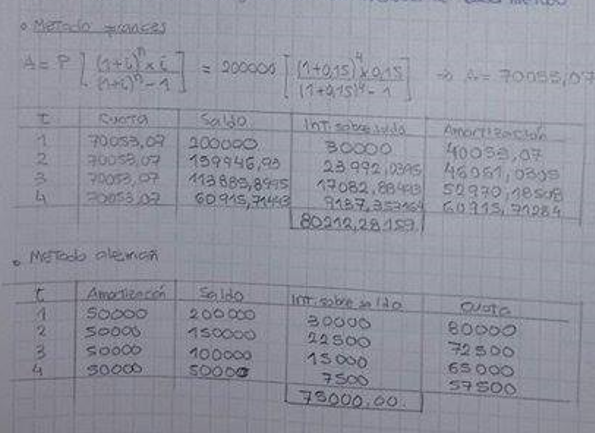 • Metodo frances
A = P [ (1+i)^n × i / (1+i)^n - 1 ] = 200000 [ (1+0,15)^4 × 0,15 / (1+0,15)^4 - 1 ] ⇒ A = 70053,07
t Cuota Saldo Int. sobre saldo Amortización
1 70053,07 200000 30000 40053,07
2 70053,07 159946,93 23992,0395 46061,0305
3 70053,07 113885,8995 17082,88493 52970,18508
4 70053,07 60915,71443 9137,357164 60915,71284
80212,28159
• Metodo aleman
t Amortización Saldo Int. sobre saldo Cuota
1 50000 200000 30000 80000
2 50000 150000 22500 72500
3 50000 100000 15000 65000
4 50000 50000 7500 57500
75000,00.